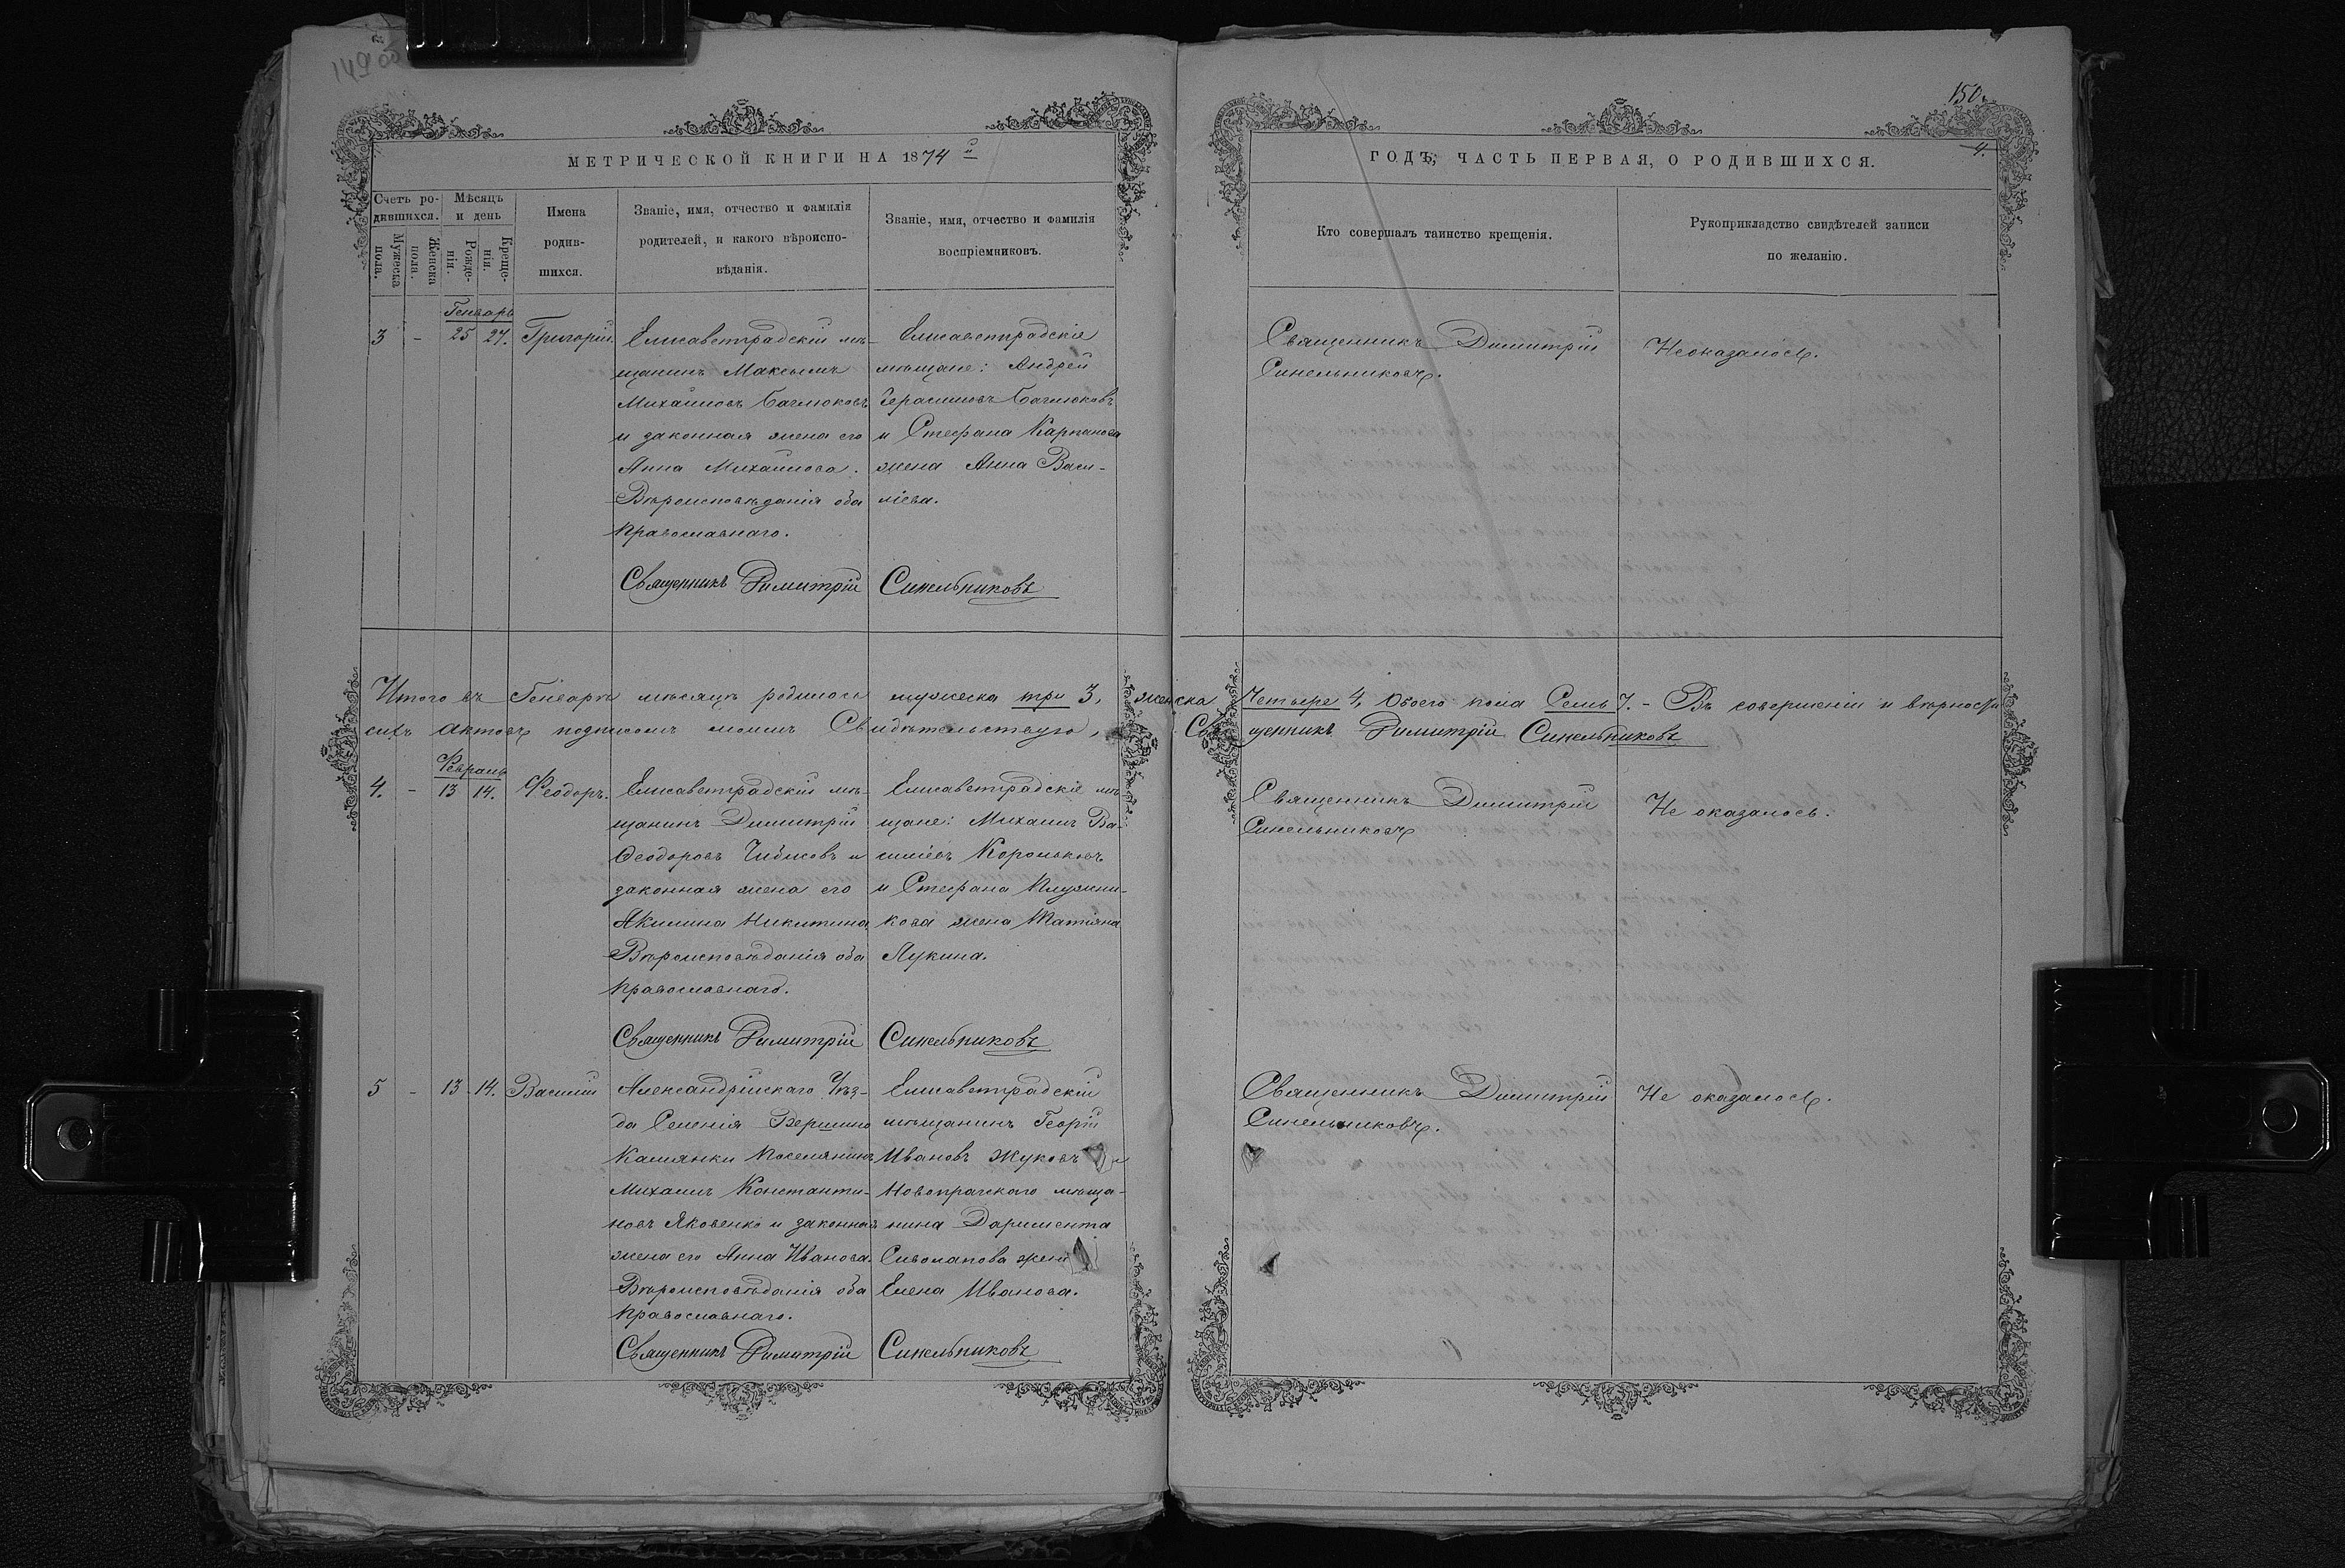 149 об
150.
МЕТРИЧЕСКОЙ КНИГИ НА 1874 й
ГОДЪ, ЧАСТЬ ПЕРВАЯ, О РОДИВШИХСЯ.
4.
Счетъ ро-
дившихся.
Мужеска пола.
Женска пола.
Мѣсяцъ
и день
Рожде-
нія.
Креще-
нія.
Имена
родив-
шихся.
Званіе, имя, отчество и фамилія
родителей, и какого вѣроиспо-
вѣданія.
Званіе, имя, отчество и фамилія
воспріемниковъ.
Кто совершалъ таинство крещенія.
Рукоприкладство свидѣтелей записи
по желанію.
Генварь
3 - 25 27. Григорій.
Елисаветградскій мѣ-
щанинъ Максимъ
Михайловъ Баглюковъ
и законная жена его
Анна Михайлова.
Вѣроисповѣданія оба
православнаго.
Елисаветградскіе
мѣщане: Андрей
Герасимовъ Баглюковъ
и Стефана Карпанова
жена Анна Васи-
ліева.
Священникъ Димитрій
Синельниковъ.
Неоказалось.
Священникъ Димитрій Синельниковъ
Итого въ Генварѣ мѣсяцѣ родилось мужеска три 3, женска Четыре 4, Обоего пола Семь 7. - Въ совершеніи и вѣрности
сихъ актовъ подписомъ моимъ Свидѣтельствую, Священникъ Димитрій Синельниковъ
Февраль
4. - 13 14. Феодоръ.
Елисаветградскій мѣ-
щанинъ Димитрій
Феодоровъ Чибисовъ и
законная жена его
Акилина Никитина
Вѣроисповѣданія оба
православнаго.
Елисаветградскіе мѣ-
щане: Михаилъ Ва-
силіевъ Корольковъ
и Стефана Плужни-
кова жена Татіяна
Лукина.
Священникъ Димитрій
Синельниковъ
Не оказалось.
Священникъ Димитрій Синельниковъ
5 - 13. 14. Василій
Александрійскаго Уѣз-
да Селенія Вершино
Камянки Поселянинъ
Михаилъ Константи-
новъ Яковенко и законная
жена его Анна Иванова.
Вѣроисповѣданія оба
православнаго.
Елисаветградскій
мѣщанинъ Георгій
Ивановъ Жуковъ и
Новопрагскаго мѣща-
нина Доримента
Сиволапова жена
Елена Иванова.
Священникъ Димитрій
Синельниковъ.
Не оказалось.
Священникъ Димитрій Синельниковъ